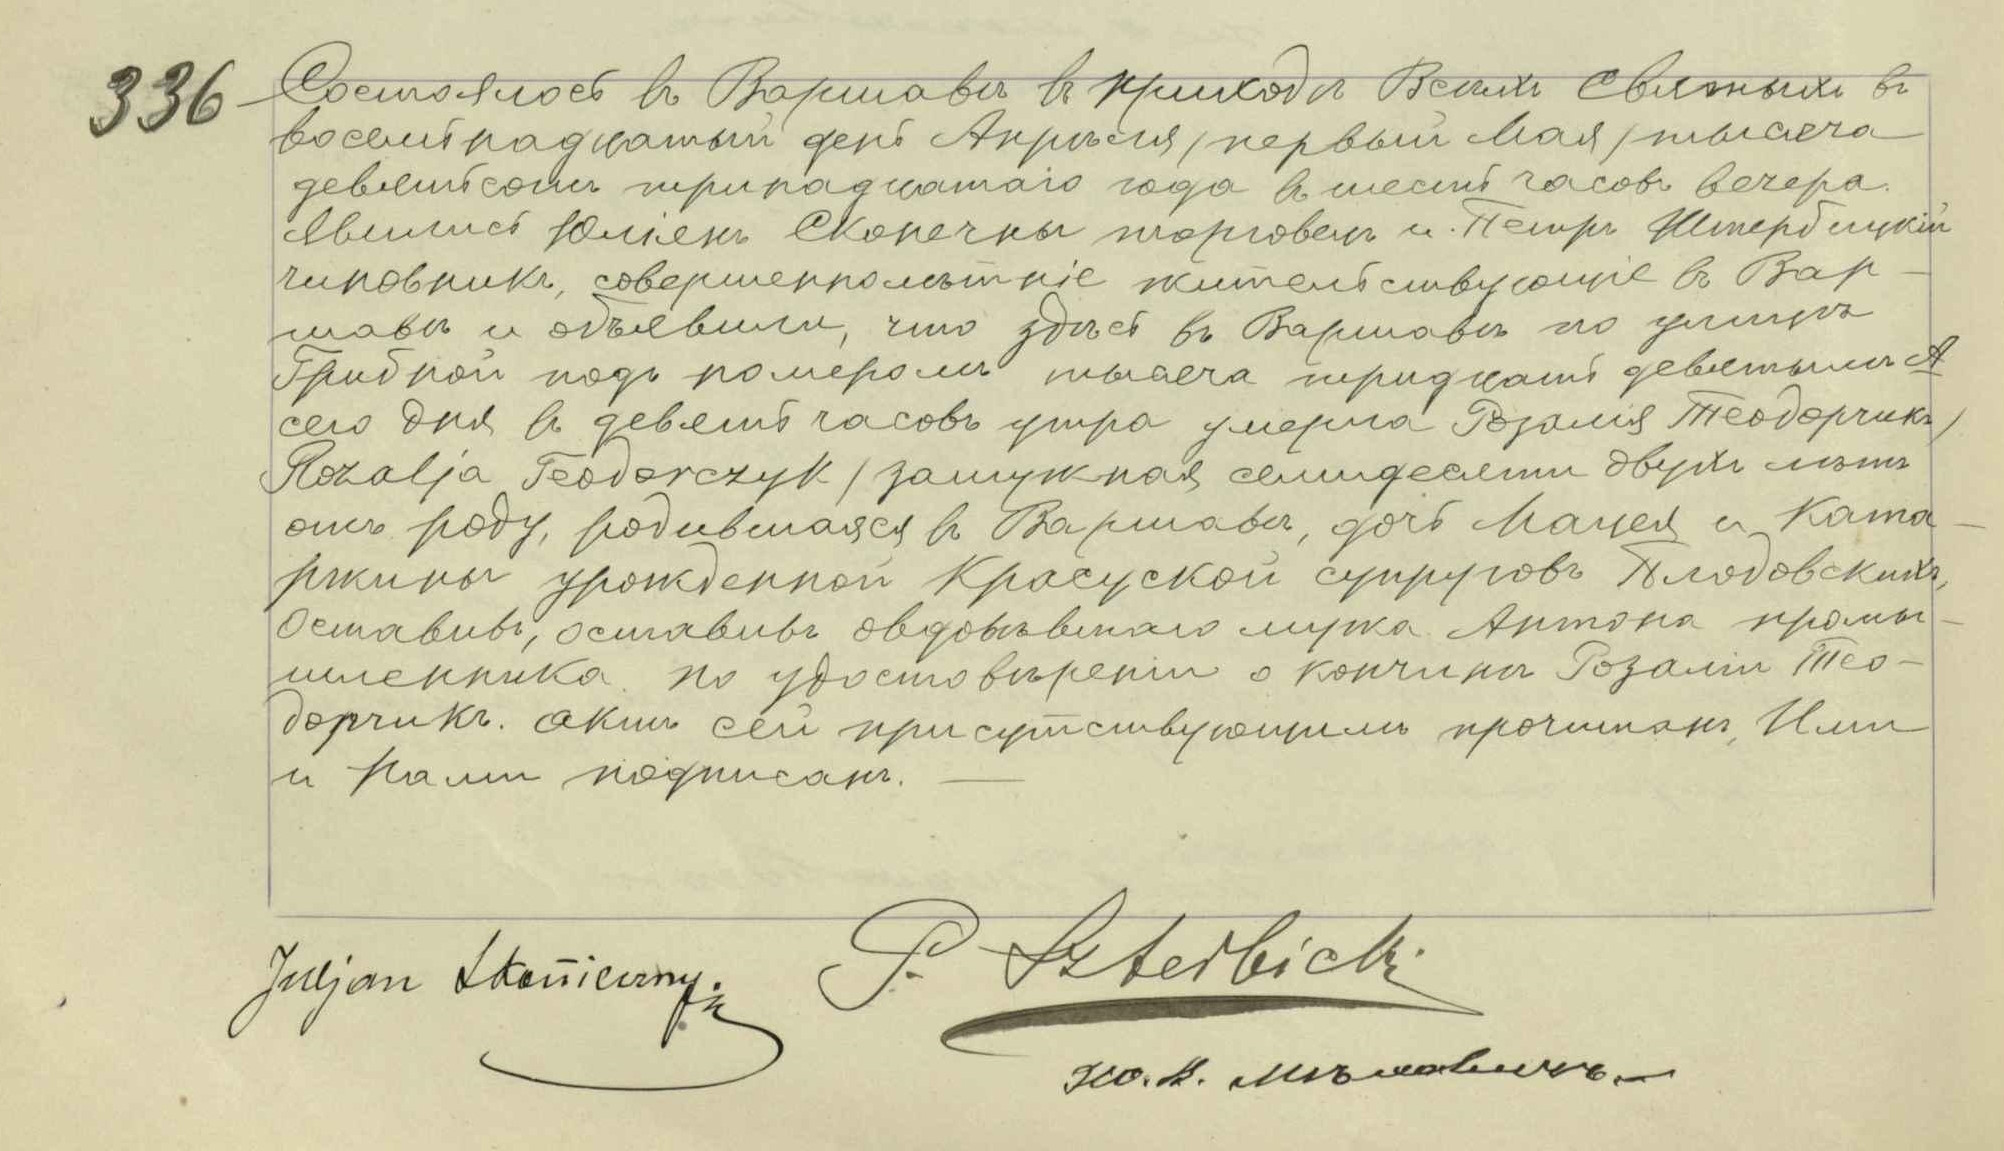 336
Состоялось въ Варшавѣ въ приходѣ Всѣхъ Святыхъ въ
восемнадцатый день Апрѣля /первый Мая/ тысяча
девятьсотъ тринадцатаго года въ шесть часовъ вечера.
Явились Юліянъ Сконечны торговецъ и Петръ Штербицкій
чиновникъ, совершеннолѣтніе жительствующіе въ Вар-
шавѣ и объявили, что здѣсь въ Варшавѣ по улицѣ
Грибной подъ номеромъ тысяча тридцать девятымъ А
сего дня въ девять часовъ утра умерла Розалія Теодорчикъ/
Rozalja Teodorczyk/ замужная семидесяти двухъ лѣтъ
отъ роду, родившаяся въ Варшавѣ, дочь Мацея и Ката-
ржины урожденной Красуской супруговъ Плодовскихъ,
оставивъ, оставивъ овдовѣвшаго мужа Антона промы-
шленника. По удостовѣреніи о кончинѣ Розаліи Тео-
дорчикъ. Актъ сей присутствующимъ прочитанъ, Ими
и Нами подписанъ. —
Juljan Skonieczny. P. Szterbicki.